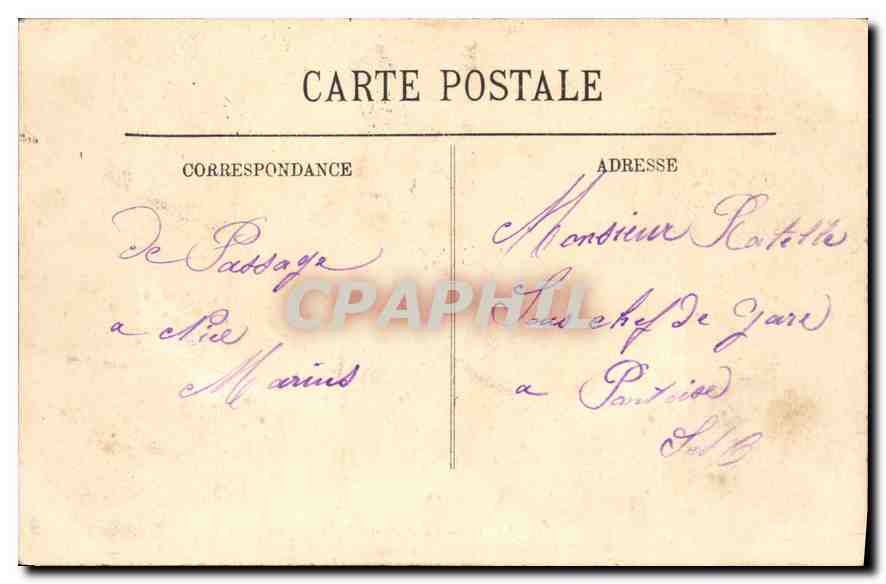 CARTE POSTALE
CORRESPONDANCE
ADRESSE
de Passage
a
Marius
Monsieur Ratelle
Sous chef de gare
a Pontoise
S et O
CPAPHIL